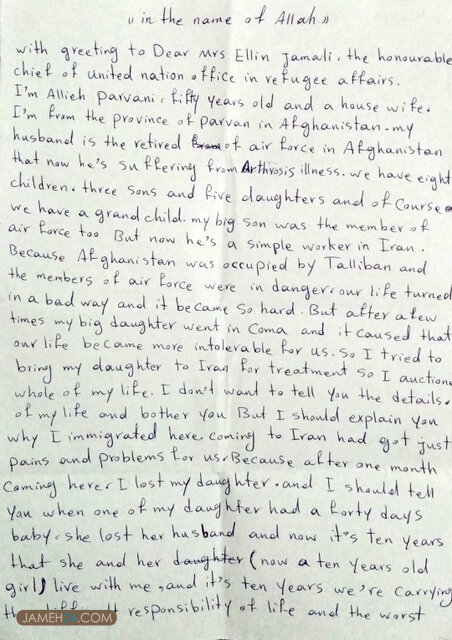 « in the name of Allah »
with greeting to Dear Mrs Ellin Jamali. the honourable
chief of united nation office in refugee affairs.
I'm Allieh Parvani. fifty years old and a house wife.
I'm from the province of parvan in Afghanistan. my
husband is the retired of air force in Afghanistan
that now he's suffering from Arthrosis illness. we have eight
children. three sons and five daughters and of course
we have a grand child. my big son was the member of
air force too But now he's a simple worker in Iran.
Because Afghanistan was occupied by Talliban and
the members of air force were in danger. our life turned
in a bad way and it became so hard. But after a few
times my big daughter went in Coma and it caused that
our life became more intolerable for us. so I tried to
bring my daughter to Iran for treatment so I auctione
whole of my life. I don't want to tell you the details.
of my life and bother you But I should explain you
why I immigrated here. coming to Iran had got just
pains and problems for us. Because after one month
coming here. I lost my daughter. and I should tell
you when one of my daughter had a forty days
baby. she lost her husband and now it's ten years
that she and her daughter (now a ten years old
girl) live with me, and it's ten years we're carrying
responsibility of life and the worst
JAMEH24.COM